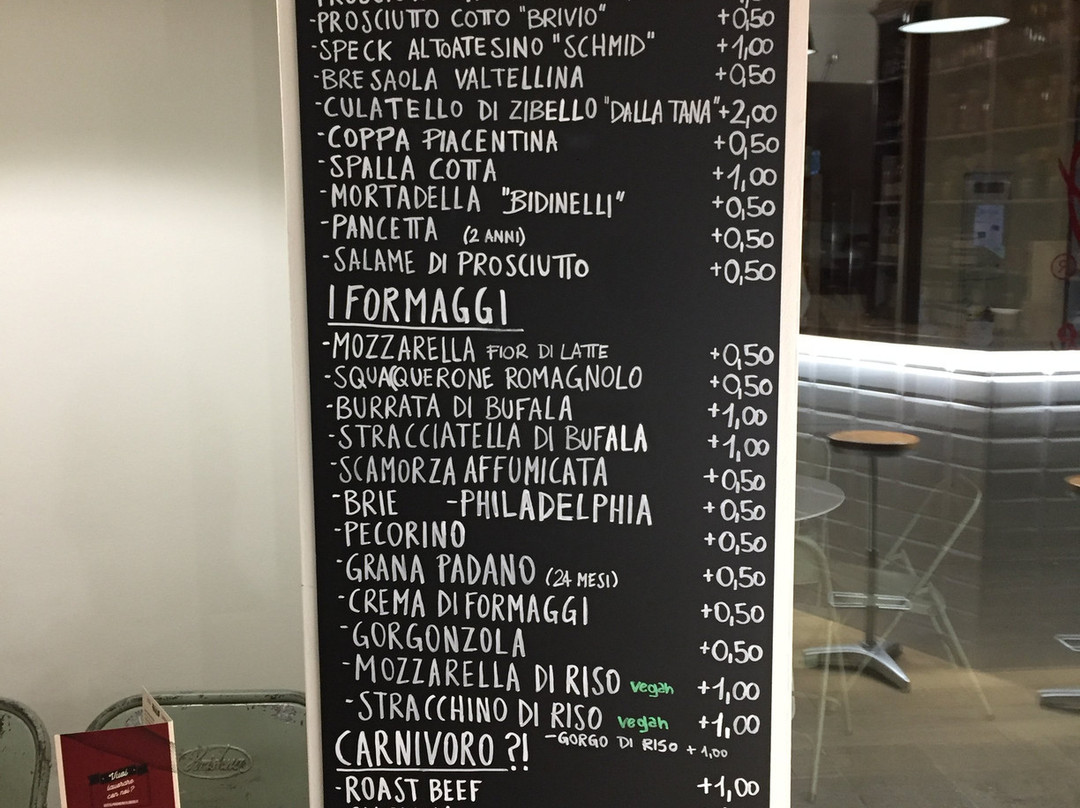 -PROSCIUTTO COTTO "BRIVIO" +0,50
-SPECK ALTOATESINO "SCHMID" +1,00
-BRESAOLA VALTELLINA +0,50
-CULATELLO DI ZIBELLO "DALLA TANA" +2,00
-COPPA PIACENTINA +0,50
-SPALLA COTTA +1,00
-MORTADELLA "BIDINELLI" +0,50
-PANCETTA (2 ANNI) +0,50
-SALAME DI PROSCIUTTO +0,50
I FORMAGGI
-MOZZARELLA FIOR DI LATTE +0,50
-SQUACQUERONE ROMAGNOLO +0,50
-BURRATA DI BUFALA +1,00
-STRACCIATELLA DI BUFALA +1,00
-SCAMORZA AFFUMICATA +0,50
-BRIE -PHILADELPHIA +0,50
-PECORINO +0,50
-GRANA PADANO (24 MESI) +0,50
-CREMA DI FORMAGGI +0,50
-GORGONZOLA +0,50
-MOZZARELLA DI RISO vegan +1,00
-STRACCHINO DI RISO vegan +1,00
-GORGO DI RISO +1,00
CARNIVORO ?!
-ROAST BEEF +1,00
Vuoi
lavorare
con noi?